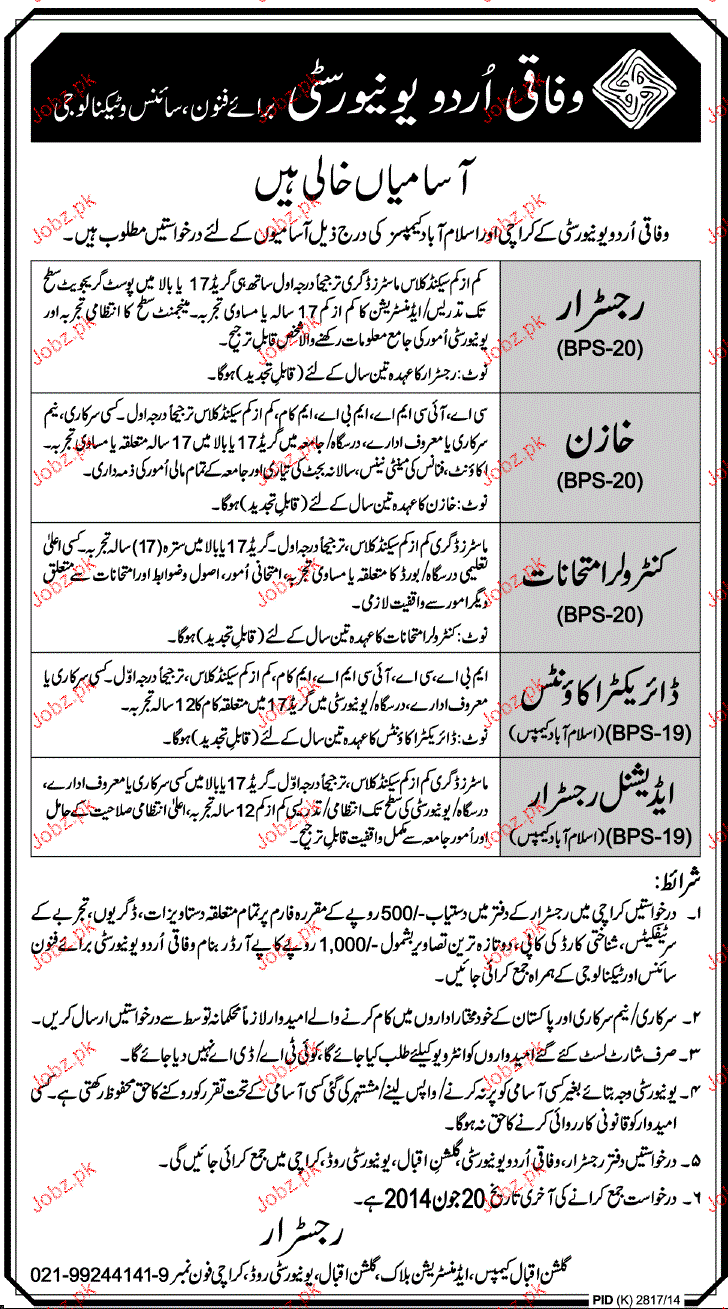 وفاقی اُردو یونیورسٹی برائے فنون، سائنس و ٹیکنالوجی
آسامیاں خالی ہیں
وفاقی اُردو یونیورسٹی کے کراچی اور اسلام آباد کیمپسز کی درج ذیل آسامیوں کے لئے درخواستیں مطلوب ہیں۔
رجسٹرار
(BPS-20)
کم از کم سیکنڈ کلاس ماسٹرز ڈگری ترجیحاً درجہ اول ساتھ ہی گریڈ 17 یا بالا میں پوسٹ گریجویٹ سطح
تک تدریس/ ایڈمنسٹریشن کا کم از کم 17 سالہ یا مساوی تجربہ۔ مینجمنٹ سطح کا انتظامی تجربہ اور
یونیورسٹی اُمور کی جامع معلومات رکھنے والا شخص قابلِ ترجیح۔
نوٹ: رجسٹرار کا عہدہ تین سال کے لئے (قابلِ تجدید) ہوگا۔
خازن
(BPS-20)
سی اے، آئی سی ایم اے، ایم بی اے، ایم کام، کم از کم سیکنڈ کلاس ترجیحاً درجہ اول۔ کسی سرکاری، نیم
سرکاری یا معروف ادارے، درسگاہ/ جامعہ میں گریڈ 17 یا بالا میں 17 سالہ متعلقہ یا مساوی تجربہ۔
اکاؤنٹ، فنانس کی مینٹی نینس، سالانہ بجٹ کی تیاری اور جامعہ کے تمام مالی اُمور کی ذمہ داری۔
نوٹ: خازن کا عہدہ تین سال کے لئے (قابلِ تجدید) ہوگا۔
کنٹرولر امتحانات
(BPS-20)
ماسٹرز ڈگری کم از کم سیکنڈ کلاس، ترجیحاً درجہ اول۔ گریڈ 17 یا بالا میں سترہ (17) سالہ تجربہ۔ کسی اعلیٰ
تعلیمی درسگاہ/ بورڈ کا متعلقہ یا مساوی تجربہ، امتحانی اُمور، اصول و ضوابط اور امتحانات سے متعلق
دیگر امور سے واقفیت لازمی۔
نوٹ: کنٹرولر امتحانات کا عہدہ تین سال کے لئے (قابلِ تجدید) ہوگا۔
ڈائریکٹر اکاؤنٹس
(BPS-19) (اسلام آباد کیمپس)
ایم بی اے، سی اے، آئی سی ایم اے، ایم کام، کم از کم سیکنڈ کلاس، ترجیحاً درجہ اوّل۔ کسی سرکاری یا
معروف ادارے، درسگاہ/ یونیورسٹی میں گریڈ 17 میں متعلقہ کام کا 12 سالہ تجربہ۔
نوٹ: ڈائریکٹر اکاؤنٹس کا عہدہ تین سال کے لئے (قابلِ تجدید) ہوگا۔
ایڈیشنل رجسٹرار
(BPS-19) (اسلام آباد کیمپس)
ماسٹرز ڈگری کم از کم سیکنڈ کلاس، ترجیحاً درجہ اوّل۔ گریڈ 17 یا بالا میں کسی سرکاری یا معروف ادارے،
درسگاہ/ یونیورسٹی کی سطح تک انتظامی/ تدریسی کم از کم 12 سالہ تجربہ، اعلیٰ انتظامی صلاحیت کے حامل
اور اُمور جامعہ سے مکمل واقفیت قابلِ ترجیح۔
شرائط:
۱۔ درخواستیں کراچی میں رجسٹرار کے دفتر میں دستیاب -/500 روپے کے مقررہ فارم پر تمام متعلقہ دستاویزات، ڈگریوں، تجربے کے
سرٹیفکیٹس، شناختی کارڈ کی کاپی، دو تازہ ترین تصاویر بشمول -/1,000 روپے کا پے آرڈر بنام وفاقی اُردو یونیورسٹی برائے فنون
سائنس اور ٹیکنالوجی کے ہمراہ جمع کرائی جائیں۔
۲۔ سرکاری/ نیم سرکاری اور پاکستان کے خود مختار اداروں میں کام کرنے والے امیدوار لازماً محکمانہ توسط سے درخواستیں ارسال کریں۔
۳۔ صرف شارٹ لسٹ کئے گئے امیدواروں کو انٹرویو کیلئے طلب کیا جائے گا، کوئی ٹی اے/ ڈی اے نہیں دیا جائے گا۔
۴۔ یونیورسٹی وجہ بتائے بغیر کسی آسامی کو پر نہ کرنے/ واپس لینے/ مشتہر کی گئی کسی آسامی کے تحت تقرر کو روکنے کا حق محفوظ رکھتی ہے۔ کسی
امیدوار کو قانونی کارروائی کرنے کا حق نہ ہوگا۔
۵۔ درخواستیں دفتر رجسٹرار، وفاقی اُردو یونیورسٹی، گلشنِ اقبال، یونیورسٹی روڈ، کراچی میں جمع کرائی جائیں گی۔
۶۔ درخواست جمع کرانے کی آخری تاریخ 20 جون 2014 ہے۔
رجسٹرار
گلشن اقبال کیمپس، ایڈمنسٹریشن بلاک، گلشن اقبال، یونیورسٹی روڈ، کراچی فون نمبر 9-99244141-021
PID (K) 2817/14
Jobz.pk